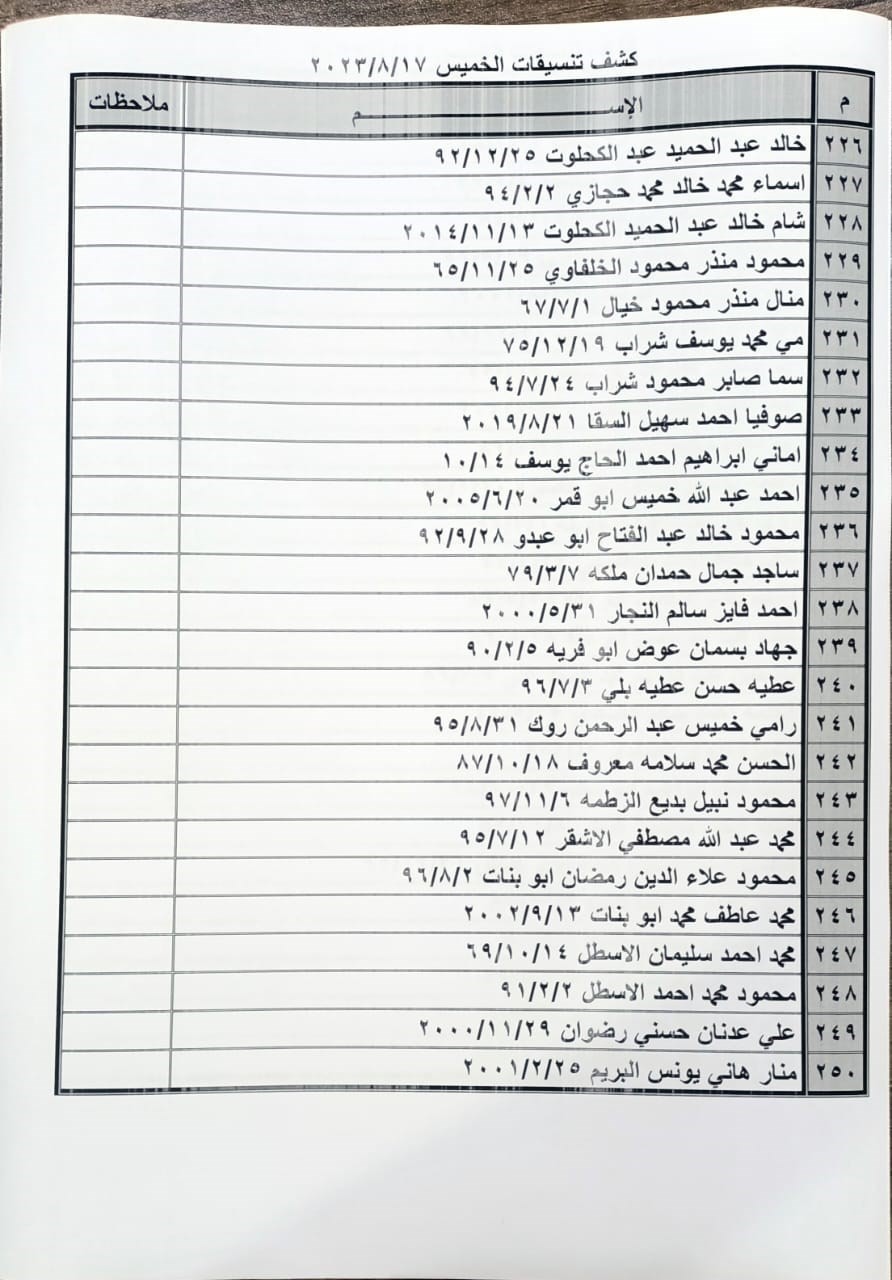 كشف تنسيقات الخميس ٢٠٢٣/٨/١٧
م الإســــــــم ملاحظات
٢٢٦ خالد عبد الحميد عبد الكحلوت ٩٢/١٢/٢٥
٢٢٧ اسماء محمد خالد محمد حجازي ٩٤/٢/٢
٢٢٨ شام خالد عبد الحميد الكحلوت ٢٠١٤/١١/١٣
٢٢٩ محمود منذر محمود الخلفاوي ٦٥/١١/٢٥
٢٣٠ منال منذر محمود خيال ٦٧/٧/١
٢٣١ مي محمد يوسف شراب ٧٥/١٢/١٩
٢٣٢ سما صابر محمود شراب ٩٤/٧/٢٤
٢٣٣ صوفيا احمد سهيل السقا ٢٠١٩/٨/٢١
٢٣٤ اماني ابراهيم احمد الحاج يوسف ١٠/١٤
٢٣٥ احمد عبد الله خميس ابو قمر ٢٠٠٥/٦/٢٠
٢٣٦ محمود خالد عبد الفتاح ابو عبدو ٩٢/٩/٢٨
٢٣٧ ساجد جمال حمدان ملكه ٧٩/٣/٧
٢٣٨ احمد فايز سالم النجار ٢٠٠٠/٥/٣١
٢٣٩ جهاد بسمان عوض ابو فريه ٩٠/٢/٥
٢٤٠ عطيه حسن عطيه بلي ٩٦/٧/٣
٢٤١ رامي خميس عبد الرحمن روك ٩٥/٨/٣١
٢٤٢ الحسن محمد سلامه معروف ٨٧/١٠/١٨
٢٤٣ محمود نبيل بديع الزطمه ٩٧/١١/٦
٢٤٤ محمد عبد الله مصطفي الاشقر ٩٥/٧/١٢
٢٤٥ محمود علاء الدين رمضان ابو بنات ٩٦/٨/٢
٢٤٦ محمد عاطف محمد ابو بنات ٢٠٠٢/٩/١٣
٢٤٧ محمد احمد سليمان الاسطل ٦٩/١٠/١٤
٢٤٨ محمود محمد احمد الاسطل ٩١/٢/٢
٢٤٩ علي عدنان حسني رضوان ٢٠٠٠/١١/٢٩
٢٥٠ منار هاني يونس البريم ٢٠٠١/٢/٢٥